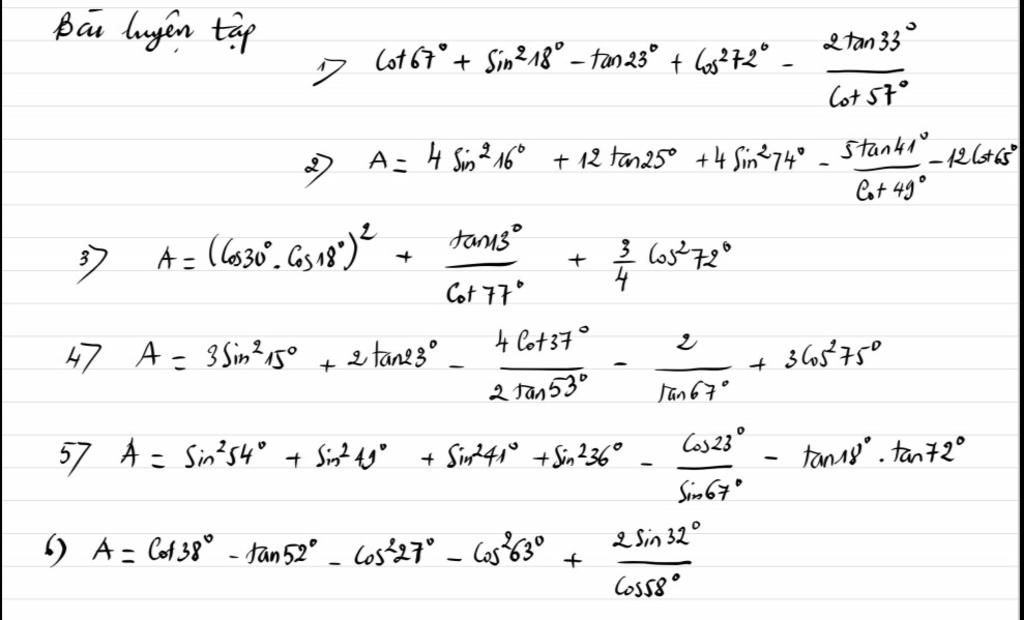 Bài luyện tập
1) Cot67° + Sin²18° - tan23° + Cos²72° - 2tan33° / Cot57°
2) A = 4 Sin²16° + 12 tan25° + 4 Sin²74° - 5tan41° / Cot49° - 12Cot65°
3) A = (Cos30° . Cos18°)² + tan13° / Cot77° + 3/4 Cos²72°
4) A = 3Sin²15° + 2tan23° - 4Cot37° / 2tan53° - 2 / tan67° + 3Cos²75°
5) A = Sin²54° + Sin²49° + Sin²41° + Sin²36° - Cos23° / Sin67° - tan18° . tan72°
6) A = Cot38° - tan52° - Cos²27° - Cos²63° + 2Sin32° / Cos58°